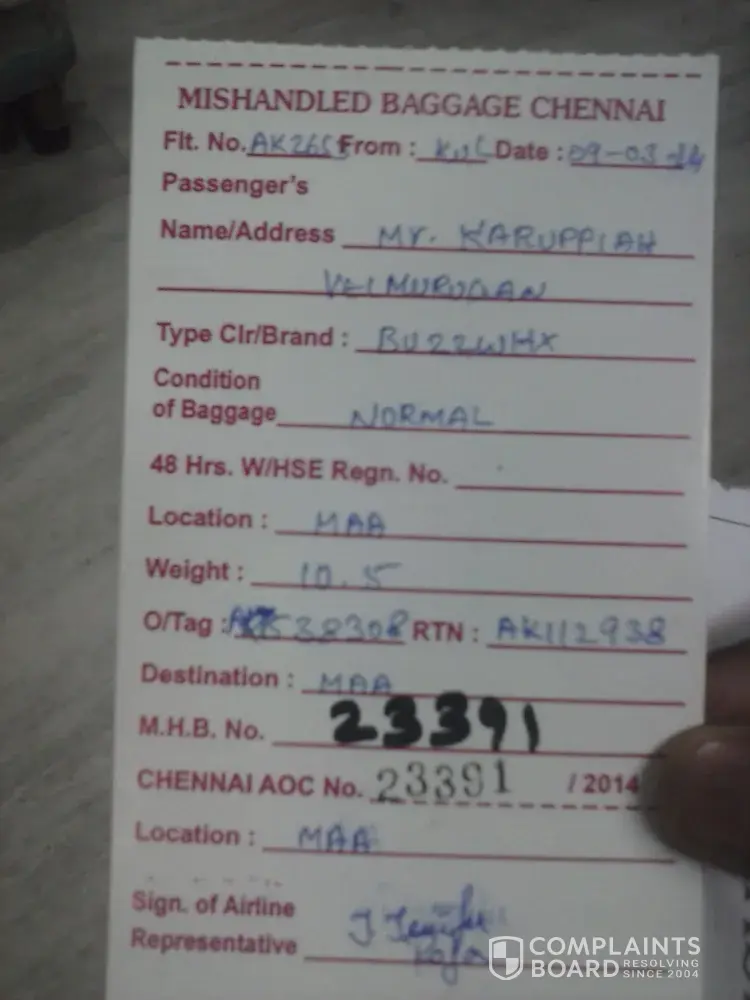 MISHANDLED BAGGAGE CHENNAI
Flt. No. From : KUL Date : 09-03-14
Passenger's
Name/Address Mr. KARUPPIAH
VELMURUGAN
Type Clr/Brand : BU22WHX
Condition
of Baggage NORMAL
48 Hrs. W/HSE Regn. No.
Location : MAA
Weight : 10.5
O/Tag : 538308 RTN : AK112938
Destination : MAA
M.H.B. No. 23391
CHENNAI AOC No. 23391 / 2014
Location : MAA
Sign. of Airline
Representative
COMPLAINTS
BOARD RESOLVING
SINCE 2004